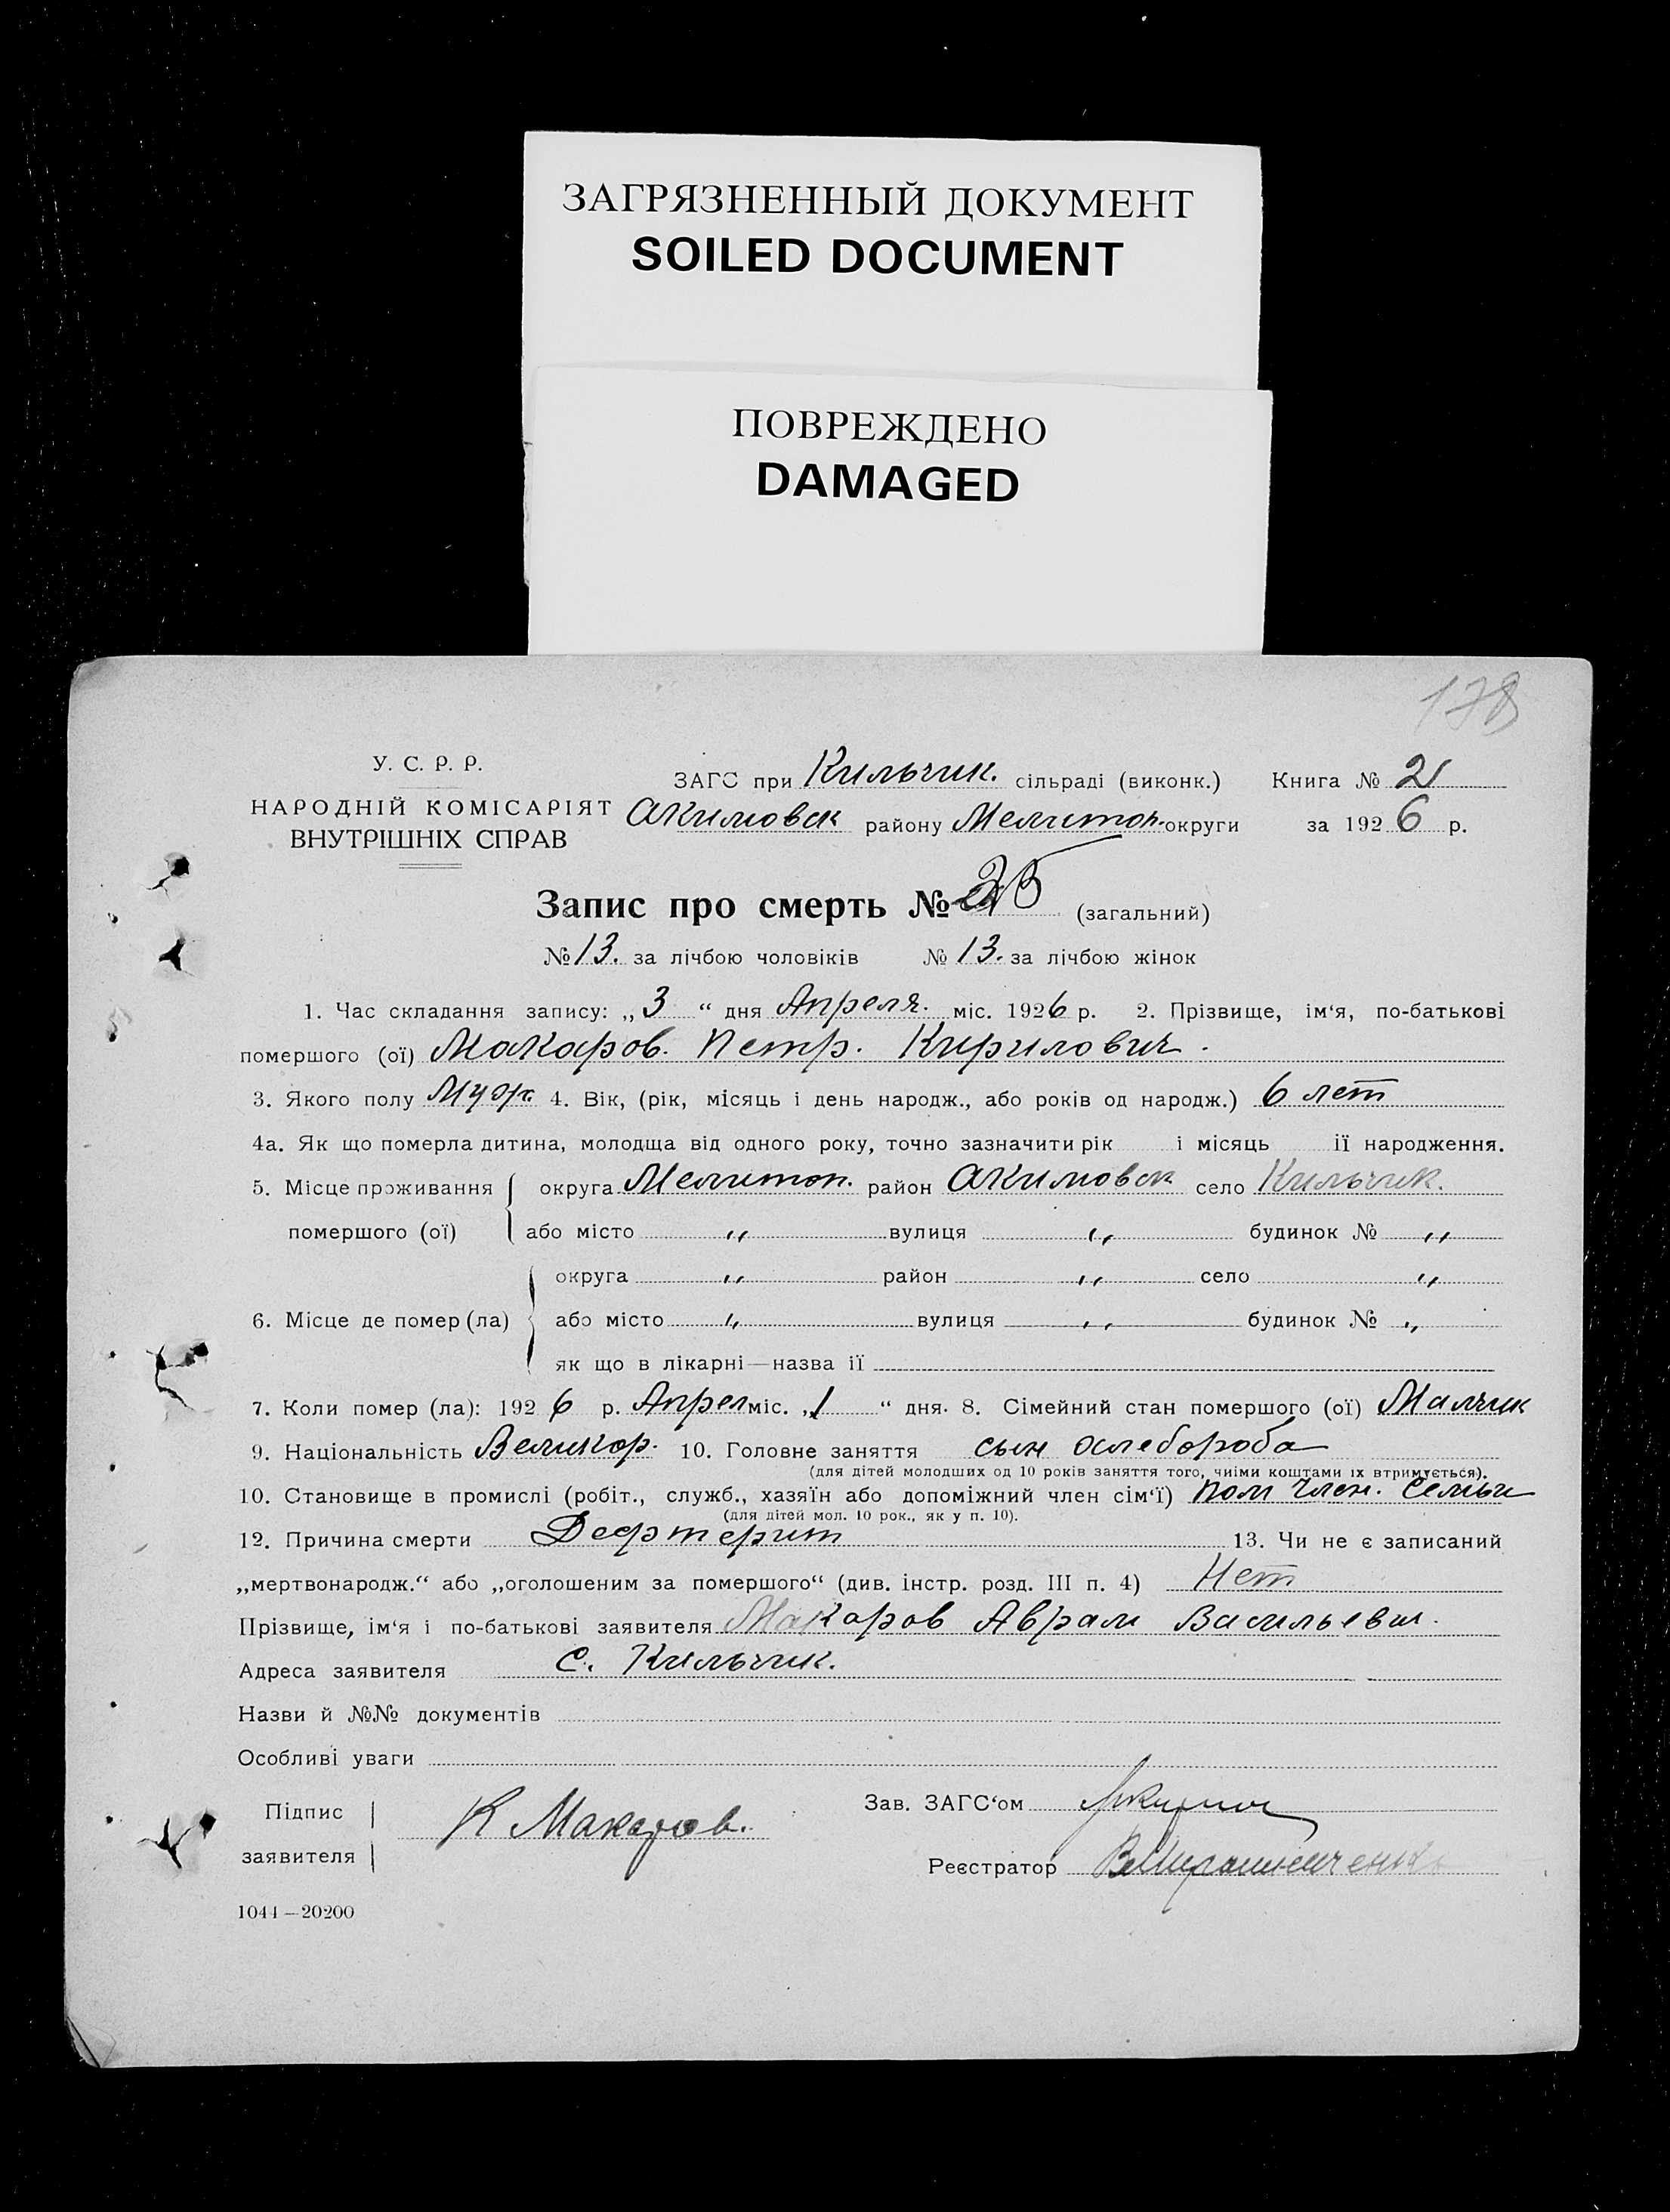 ЗАГРЯЗНЕННЫЙ ДОКУМЕНТ
SOILED DOCUMENT
ПОВРЕЖДЕНО
DAMAGED
178
У. С. Р. Р.
НАРОДНІЙ КОМІСАРІЯТ
ВНУТРІШНІХ СПРАВ
ЗАГС при Кильчик. сільраді (виконк.) Книга № 2
Акимовск району Мелитоп. округи за 1926 р.
Запис про смерть № (загальний)
№ 13. за лічбою чоловіків № 13. за лічбою жінок
1. Час складання запису: „3“ дня Апреля. міс. 1926 р. 2. Прізвище, ім‘я, по-батькові
помершого (ої) Макаров. Петр. Кирилович.
3. Якого полу Муж. 4. Вік, (рік, місяць і день народж., або років од народж.) 6 лет
4а. Як що померла дитина, молодща від одного року, точно зазначити рік і місяць її народження.
5. Місце проживання округа Мелитоп. район Акимовск село Кильчик.
помершого (ої) або місто „ вулиця „ будинок № „
округа „ район „ село „
6. Місце де помер (ла) або місто „ вулиця „ будинок № „
як що в лікарні—назва її
7. Коли помер (ла): 1926 р. Апрел міс. „1“ дня. 8. Сімейний стан помершого (ої) Малчик
9. Національність Великор. 10. Головне заняття сын
(для дітей молодших од 10 років заняття того, чиїми коштами їх втримується).
10. Становище в промислі (робіт., служб., хазяїн або допоміжний член сім‘ї) пом член. Семьи
(для дітей мол. 10 рок., як у п. 10).
12. Причина смерти Дефтерит 13. Чи не є записаний
„мертвонародж.“ або „оголошеним за помершого“ (див. інстр. розд. III п. 4) Нет
Прізвище, ім‘я і по-батькові заявителя Макаров Аврам Васильевич.
Адреса заявителя с. Кильчик.
Назви й №№ документів
Особливі уваги
Підпис
заявителя К Макаров.
Зав. ЗАГС‘ом
Реєстратор
1044—20200